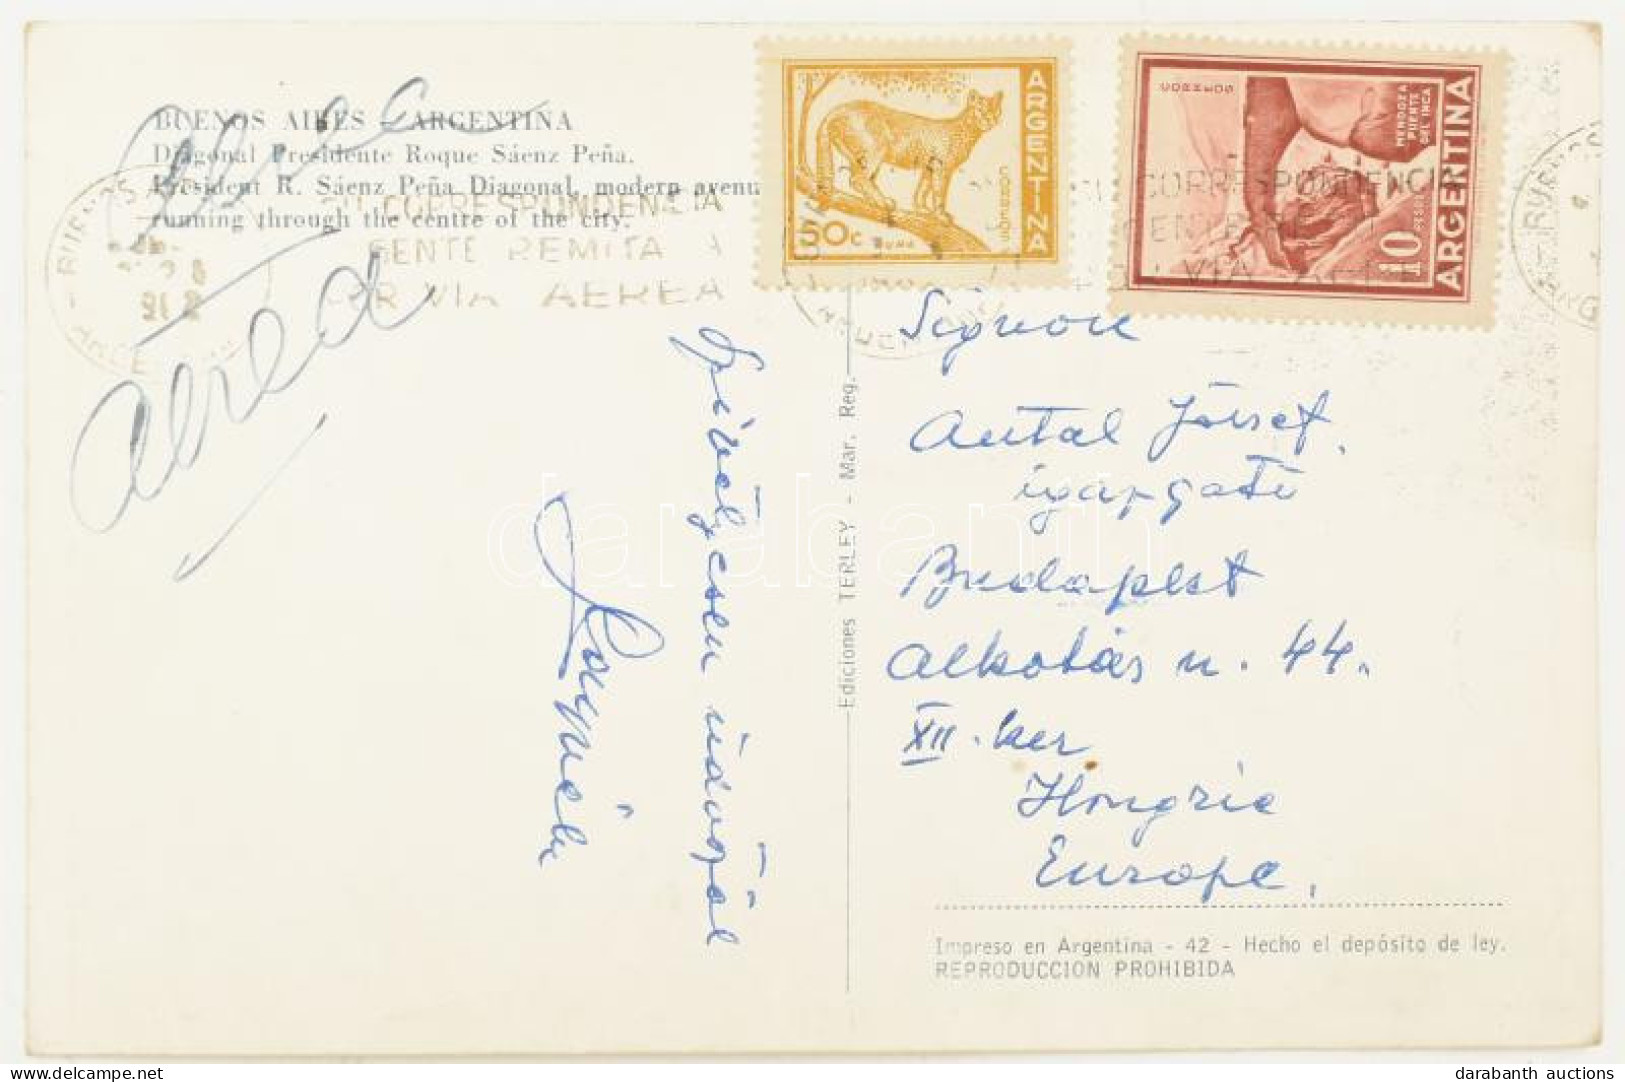 BUENOS AIRES - ARGENTINA
Diagonal Presidente Roque Sáenz Peña.
President R. Sáenz Peña Diagonal, modern avenu
running through the centre of the city.
CORRESPONDENCIA
GENTE REMITA
VIA AEREA
aerea
üdvözöl
Ediciones TERLEY - Mar. Reg.
ARGENTINA
CORREOS
50c
PUMA
CORREOS
MENDOZA
PUENTE
DEL INCA
10 PESOS
ARGENTINA
CORRESPONDENCI
VIA
Antal József
igazgató
Budapest
Alkotás u. 44.
XII. ker
Hongrie
Europe.
Impreso en Argentina - 42 - Hecho el depósito de ley.
REPRODUCCION PROHIBIDA
darabanth
darabanth auctions